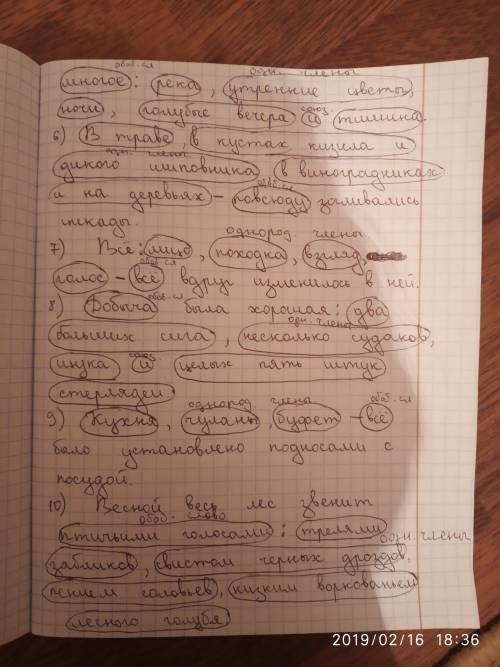 обоб. сл одн. члены
многое: река, утренние цветы,
союз
ночи, голубые вечера и тишина.
6) В траве, в кустах кизила и
одн. члены
дикого шиповника, в виноградниках
обоб. сл
и на деревьях – повсюду заливались
цикады.
однород члены
7) Всё: лицо, походка, взгляд,
обоб. сл
голос – всё вдруг изменилось в ней.
8) Добыча была хорошая: два
обоб. сл
одн. члены
больших сига, несколько судаков,
союз
щука и целых пять штук
стерлядей
однород. члены обоб. сл
9) Кухня, чуланы, буфет – всё
было установлено подносами с
посудой.
10) Весной весь лес звенит
обоб. слово
птичьими голосами: трелями
одн. члены
зябликов, свистом черных дроздов,
пением соловьев, низким воркованьем
лесного голубя
2019/02/16 18:36